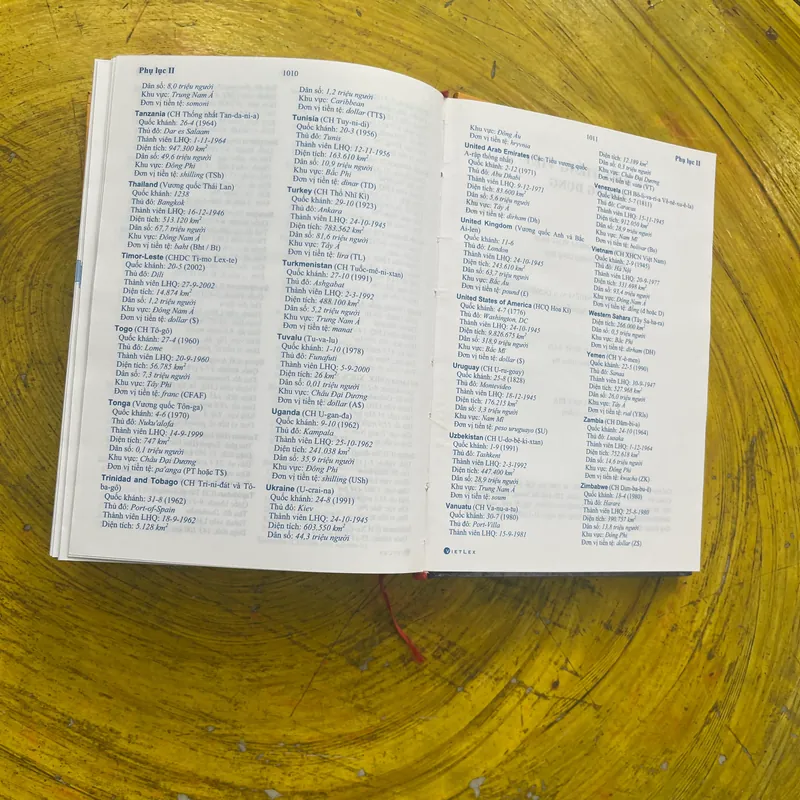 Phụ lục II
1010
Dân số: 8,0 triệu người
Khu vực: Trung Nam Á
Đơn vị tiền tệ: somoni
Tanzania (CH Thống nhất Tan-da-ni-a)
Quốc khánh: 26-4 (1964)
Thủ đô: Dar es Salaam
Thành viên LHQ: 1-11-1964
Diện tích: 947.300 km²
Dân số: 49,6 triệu người
Khu vực: Đông Phi
Đơn vị tiền tệ: shilling (TSh)
Thailand (Vương quốc Thái Lan)
Quốc khánh: 1238
Thủ đô: Bangkok
Thành viên LHQ: 16-12-1946
Diện tích: 513.120 km²
Dân số: 67,7 triệu người
Khu vực: Đông Nam Á
Đơn vị tiền tệ: baht (Bht / Bt)
Timor-Leste (CHDC Ti-mo Lex-te)
Quốc khánh: 20-5 (2002)
Thủ đô: Dili
Thành viên LHQ: 27-9-2002
Diện tích: 14.874 km²
Dân số: 1,2 triệu người
Khu vực: Đông Nam Á
Đơn vị tiền tệ: dollar ($)
Togo (CH Tô-gô)
Quốc khánh: 27-4 (1960)
Thủ đô: Lome
Thành viên LHQ: 20-9-1960
Diện tích: 56.785 km²
Dân số: 7,3 triệu người
Khu vực: Tây Phi
Đơn vị tiền tệ: franc (CFAF)
Tonga (Vương quốc Tôn-ga)
Quốc khánh: 4-6 (1970)
Thủ đô: Nuku'alofa
Thành viên LHQ: 14-9-1999
Diện tích: 747 km²
Dân số: 0,1 triệu người
Khu vực: Châu Đại Dương
Đơn vị tiền tệ: pa'anga (PT hoặc T$)
Trinidad and Tobago (CH Tri-ni-đát và Tô-
ba-gô)
Quốc khánh: 31-8 (1962)
Thủ đô: Port-of-Spain
Thành viên LHQ: 18-9-1962
Diện tích: 5.128 km²
Dân số: 1,2 triệu người
Khu vực: Caribbean
Đơn vị tiền tệ: dollar (TT$)
Tunisia (CH Tuy-ni-di)
Quốc khánh: 20-3 (1956)
Thủ đô: Tunis
Thành viên LHQ: 12-11-1956
Diện tích: 163.610 km²
Dân số: 10,9 triệu người
Khu vực: Bắc Phi
Đơn vị tiền tệ: dinar (TD)
Turkey (CH Thổ Nhĩ Kì)
Quốc khánh: 29-10 (1923)
Thủ đô: Ankara
Thành viên LHQ: 24-10-1945
Diện tích: 783.562 km²
Dân số: 81,6 triệu người
Khu vực: Tây Á
Đơn vị tiền tệ: lira (TL)
Turkmenistan (CH Tuốc-mê-ni-xtan)
Quốc khánh: 27-10 (1991)
Thủ đô: Ashgabat
Thành viên LHQ: 2-3-1992
Diện tích: 488.100 km²
Dân số: 5,2 triệu người
Khu vực: Trung Nam Á
Đơn vị tiền tệ: manat
Tuvalu (Tu-va-lu)
Quốc khánh: 1-10 (1978)
Thủ đô: Funafuti
Thành viên LHQ: 5-9-2000
Diện tích: 26 km²
Dân số: 0,01 triệu người
Khu vực: Châu Đại Dương
Đơn vị tiền tệ: dollar (A$)
Uganda (CH U-gan-đa)
Quốc khánh: 9-10 (1962)
Thủ đô: Kampala
Thành viên LHQ: 25-10-1962
Diện tích: 241.038 km²
Dân số: 35,9 triệu người
Khu vực: Đông Phi
Đơn vị tiền tệ: shilling (USh)
Ukraine (U-crai-na)
Quốc khánh: 24-8 (1991)
Thủ đô: Kiev
Thành viên LHQ: 24-10-1945
Diện tích: 603.550 km²
Dân số: 44,3 triệu người
1011
Phụ lục II
Khu vực: Đông Âu
Đơn vị tiền tệ: hryvnia
United Arab Emirates (Các Tiểu vương quốc
A-rập thống nhất)
Quốc khánh: 2-12 (1971)
Thủ đô: Abu Dhabi
Thành viên LHQ: 9-12-1971
Diện tích: 83.600 km²
Dân số: 5,6 triệu người
Khu vực: Tây Á
Đơn vị tiền tệ: dirham (Dh)
United Kingdom (Vương quốc Anh và Bắc
Ai-len)
Quốc khánh: 11-6
Thủ đô: London
Thành viên LHQ: 24-10-1945
Diện tích: 243.610 km²
Dân số: 63,7 triệu người
Khu vực: Bắc Âu
Đơn vị tiền tệ: pound (£)
United States of America (HCQ Hoa Kì)
Quốc khánh: 4-7 (1776)
Thủ đô: Washington, DC
Thành viên LHQ: 24-10-1945
Diện tích: 9.826.675 km²
Dân số: 318,9 triệu người
Khu vực: Bắc Mĩ
Đơn vị tiền tệ: dollar ($)
Uruguay (CH U-ru-goay)
Quốc khánh: 25-8 (1828)
Thủ đô: Montevideo
Thành viên LHQ: 18-12-1945
Diện tích: 176.215 km²
Dân số: 3,3 triệu người
Khu vực: Nam Mĩ
Đơn vị tiền tệ: peso uruguayo ($U)
Uzbekistan (CH U-dơ-bê-ki-xtan)
Quốc khánh: 1-9 (1991)
Thủ đô: Tashkent
Thành viên LHQ: 2-3-1992
Diện tích: 447.400 km²
Dân số: 28,9 triệu người
Khu vực: Trung Nam Á
Đơn vị tiền tệ: soum
Vanuatu (CH Va-nu-a-tu)
Quốc khánh: 30-7 (1980)
Thủ đô: Port-Villa
Thành viên LHQ: 15-9-1981
Diện tích: 12.189 km²
Khu vực: Châu Đại Dương
Đơn vị tiền tệ: vatu (VT)
Quốc khánh: 5-7 (1811)
Thủ đô: Caracas
Thành viên LHQ: 15-11-1945
Diện tích: 912.050 km²
Dân số: 28,9 triệu người
Khu vực: Nam Mĩ
Đơn vị tiền tệ: bolivar (Bs)
Vietnam (CH XHCN Việt Nam)
Quốc khánh: 2-9 (1945)
Thủ đô: Hà Nội
Diện tích: 331.698 km²
Dân số: 93,4 triệu người
Khu vực: Đông Nam Á
Đơn vị tiền tệ: đồng (đ hoặc D)
Western Sahara (Tây Sa-ha-ra)
Diện tích: 266.000 km²
Dân số: 0,5 triệu người
Khu vực: Bắc Phi
Đơn vị tiền tệ: dirham (DH)
Yemen (CH Y-ê-men)
Quốc khánh: 22-5 (1990)
Thủ đô: Sanaa
Thành viên LHQ: 30-9-1947
Diện tích: 527.968 km²
Dân số: 26,0 triệu người
Khu vực: Tây Á
Đơn vị tiền tệ: rial (YRls)
Zambia (CH Dăm-bi-a)
Quốc khánh: 24-10 (1964)
Thủ đô: Lusaka
Thành viên LHQ: 1-12-1964
Diện tích: 752.618 km²
Dân số: 14,6 triệu người
Khu vực: Đông Phi
Đơn vị tiền tệ: kwacha (ZK)
Zimbabwe (CH Dim-ba-bu-ê)
Quốc khánh: 18-4 (1980)
Thủ đô: Harary
Thành viên LHQ: 25-8-1980
Diện tích: 390.757 km²
Dân số: 13,8 triệu người
Khu vực: Đông Phi
Đơn vị tiền tệ: dollar (Z$)
VIETLEX